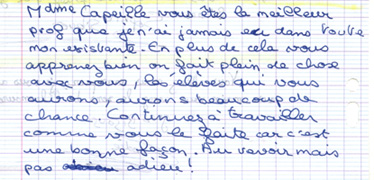 Mdme Capeille vous êtes la meilleur
prof que je n'ai jamais eu dans toute
mon existante. En plus de cela vous
apprenez bien on fait plein de chose
avec vous, les élèves qui vous
aurons aurons beaucoup de
chance. Continuez à travailler
comme vous le faite car c'est
une bonne façon. Au revoir mais
pas adieu!